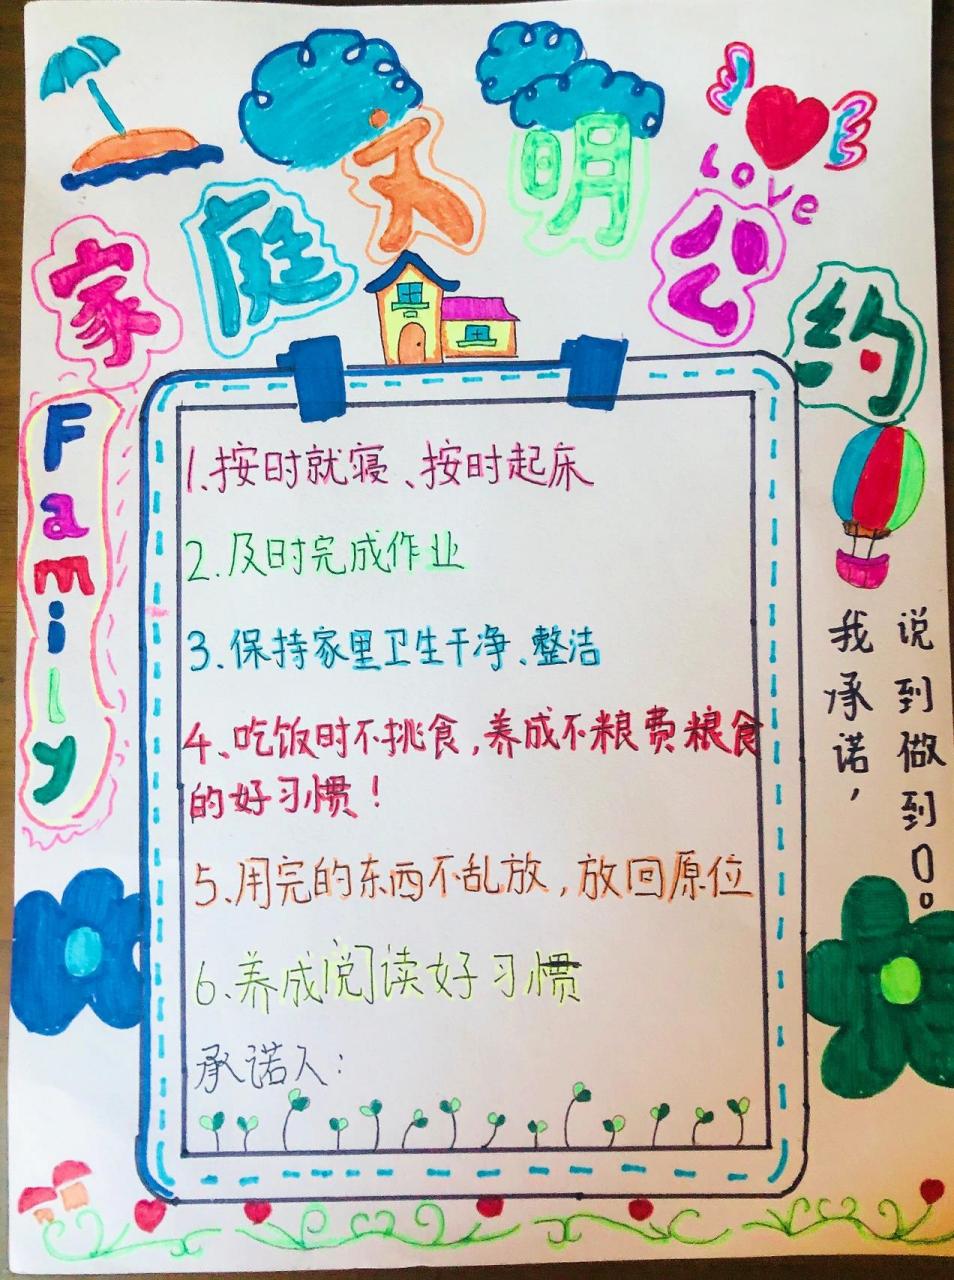 Love
家庭文明公约
Family
1.按时就寝、按时起床
2.及时完成作业
3.保持家里卫生干净、整洁
4、吃饭时不挑食,养成不粮费粮食
的好习惯!
5、用完的东西不乱放,放回原位
6、养成阅读好习惯
承诺人:
我承诺,
说到做到!